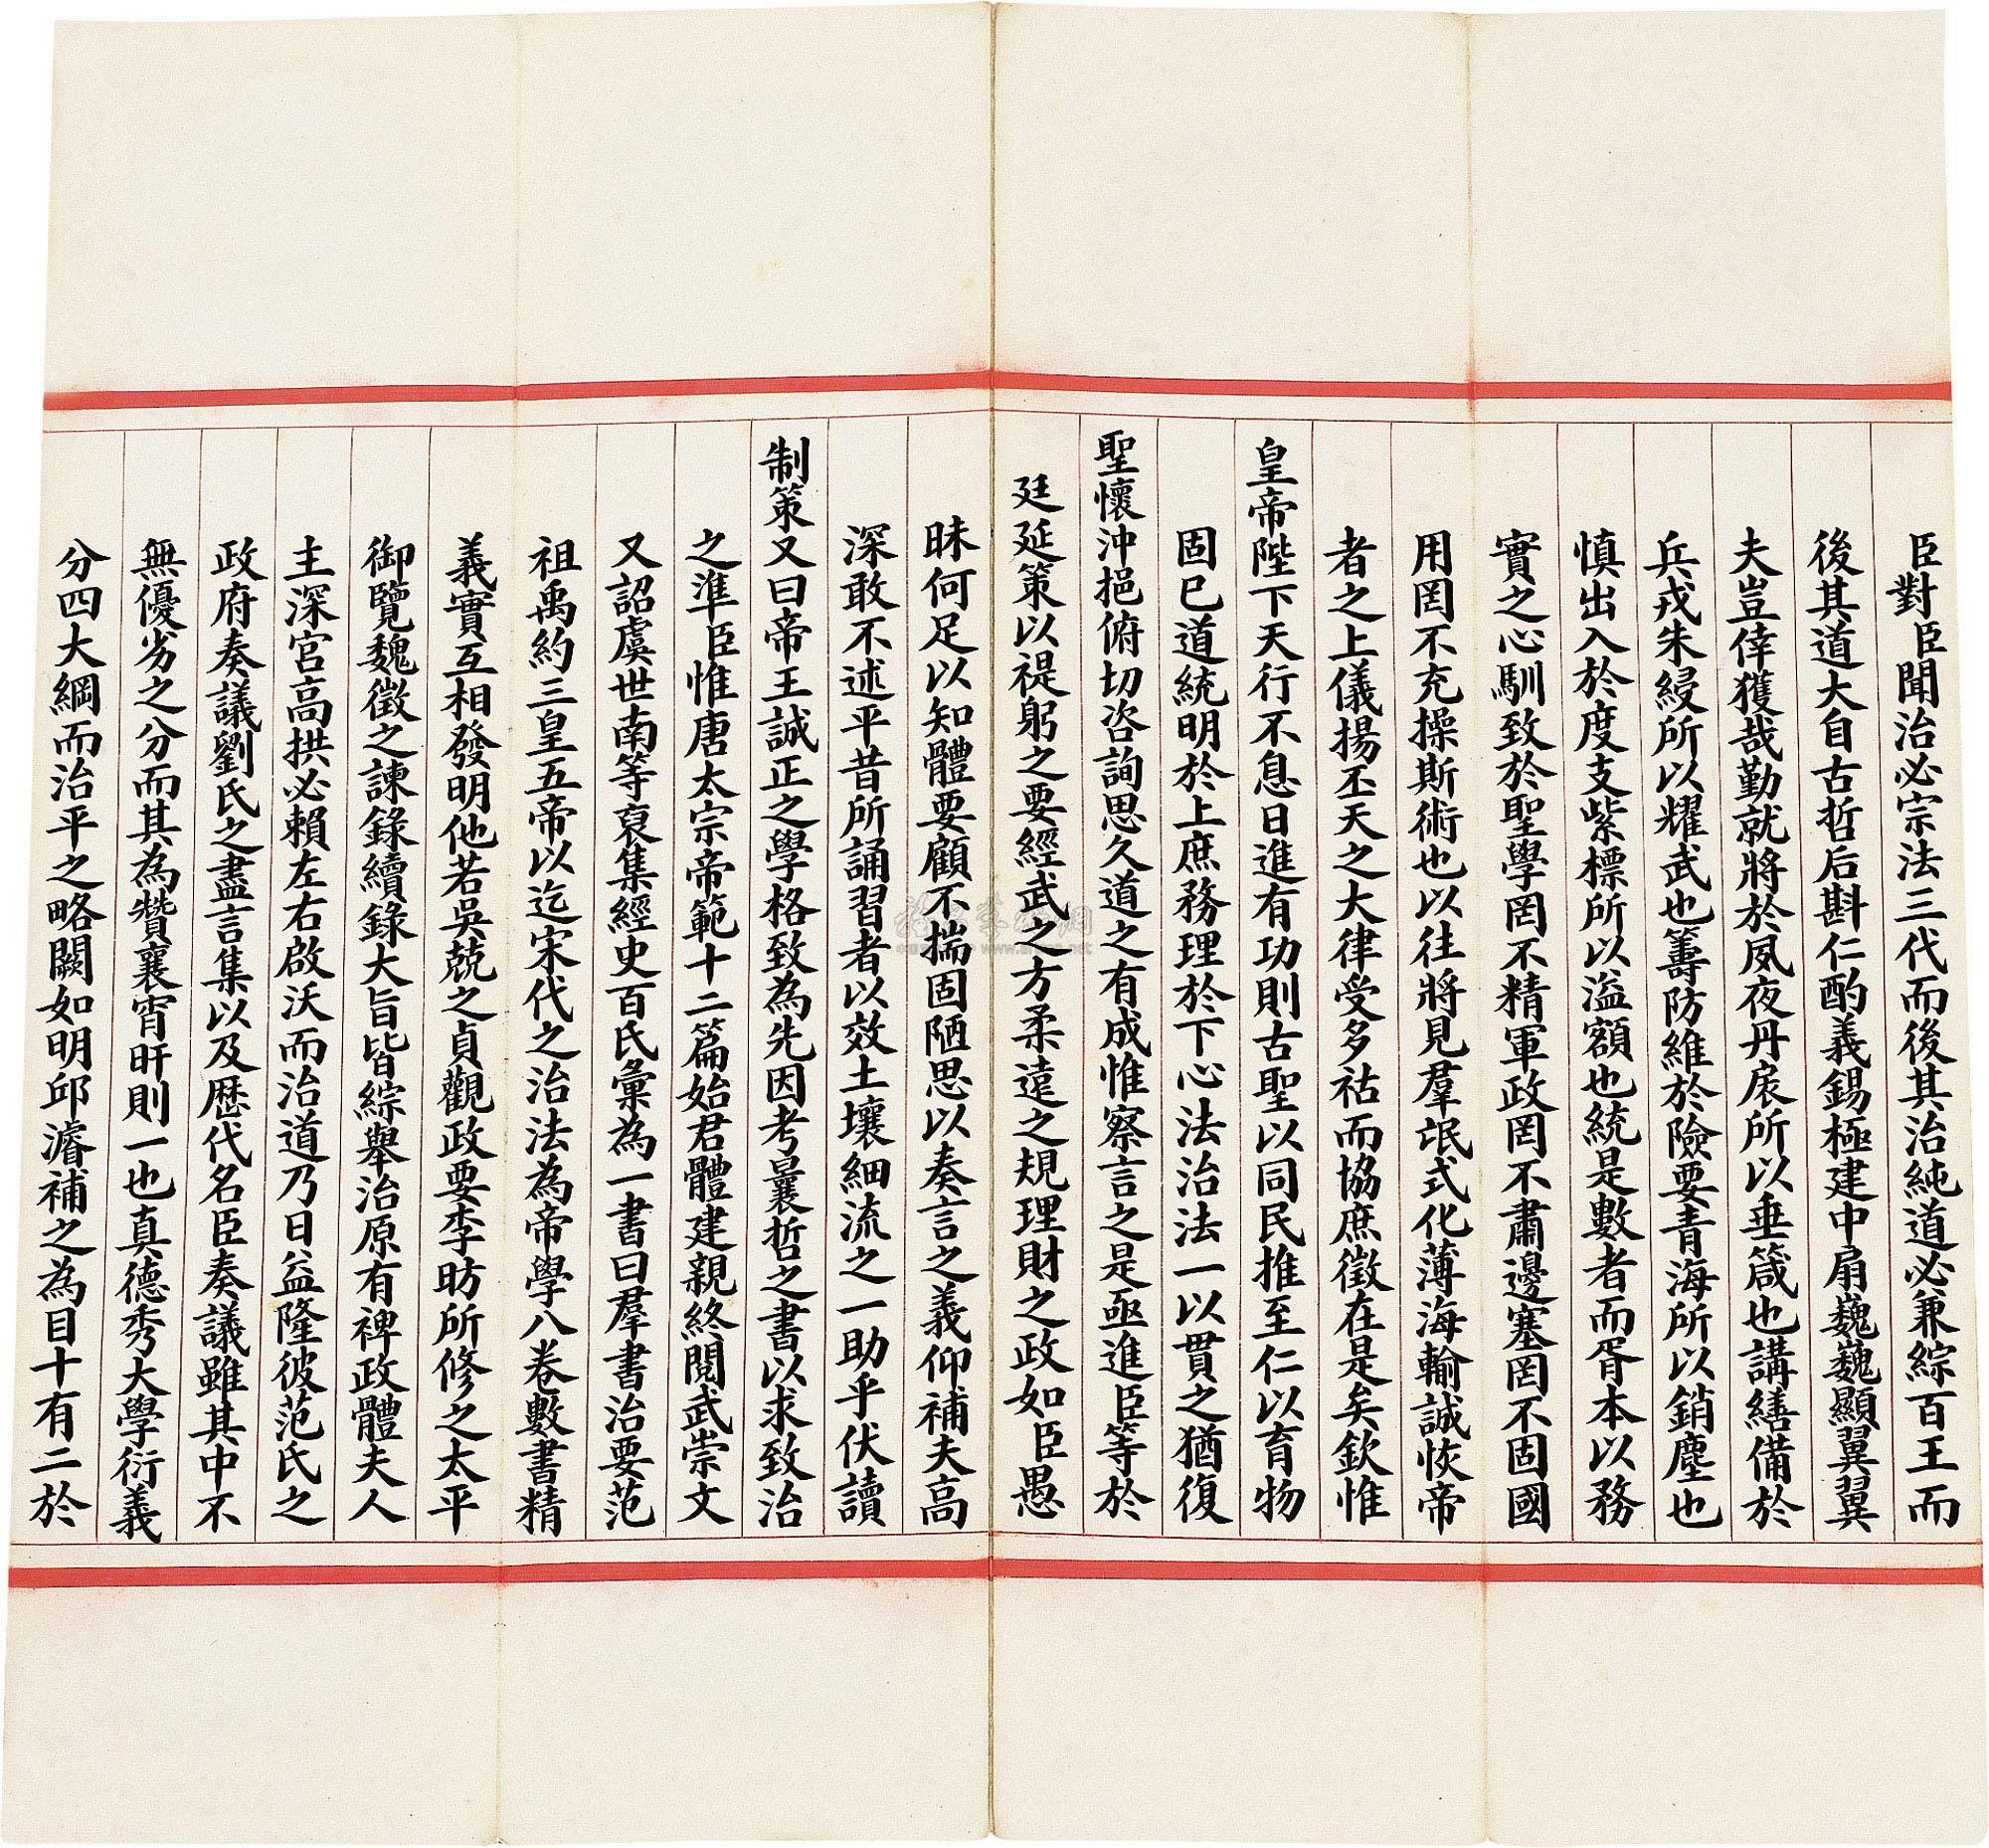 臣對臣聞治必宗法三代而後其治純道必兼綜百王而
後其道大自古哲后斟仁酌義錫極建中扇巍巍顯翼翼
夫豈倖獲哉勤就將於夙夜丹扆所以垂箴也講繕備於
兵戎朱綅所以耀武也籌防維於險要青海所以銷塵也
慎出入於度支紫標所以溢額也統是數者而胥本以務
實之心馴致於聖學罔不精軍政罔不肅邊塞罔不固國
用罔不充操斯術也以往將見羣氓式化薄海輸誠恢帝
者之上儀揚丕天之大律受多祜而協庶徵在是矣欽惟
皇帝陛下天行不息日進有功則古聖以同民推至仁以育物
固已道統明於上庶務理於下心法治法一以貫之猶復
聖懷沖挹俯切咨詢思久道之有成惟察言之是亟進臣等於
廷延策以禔躬之要經武之方柔遠之規理財之政如臣愚
昧何足以知體要顧不揣固陋思以奏言之義仰補夫高
深敢不述平昔所誦習者以效土壤細流之一助乎伏讀
制策又曰帝王誠正之學格致為先因考曩哲之書以求致治
之準臣惟唐太宗帝範十二篇始君體建親終閱武崇文
又詔虞世南等裒集經史百氏彙為一書曰羣書治要范
祖禹約三皇五帝以迄宋代之治法為帝學八卷數書精
義實互相發明他若吳兢之貞觀政要李昉所修之太平
御覽魏徵之諫錄續錄大旨皆綜舉治原有裨政體夫人
主深宮高拱必賴左右啟沃而治道乃日益隆彼范氏之
政府奏議劉氏之盡言集以及歷代名臣奏議雖其中不
無優劣之分而其為贊襄宵旰則一也真德秀大學衍義
分四大綱而治平之略闕如明邱濬補之為目十有二於